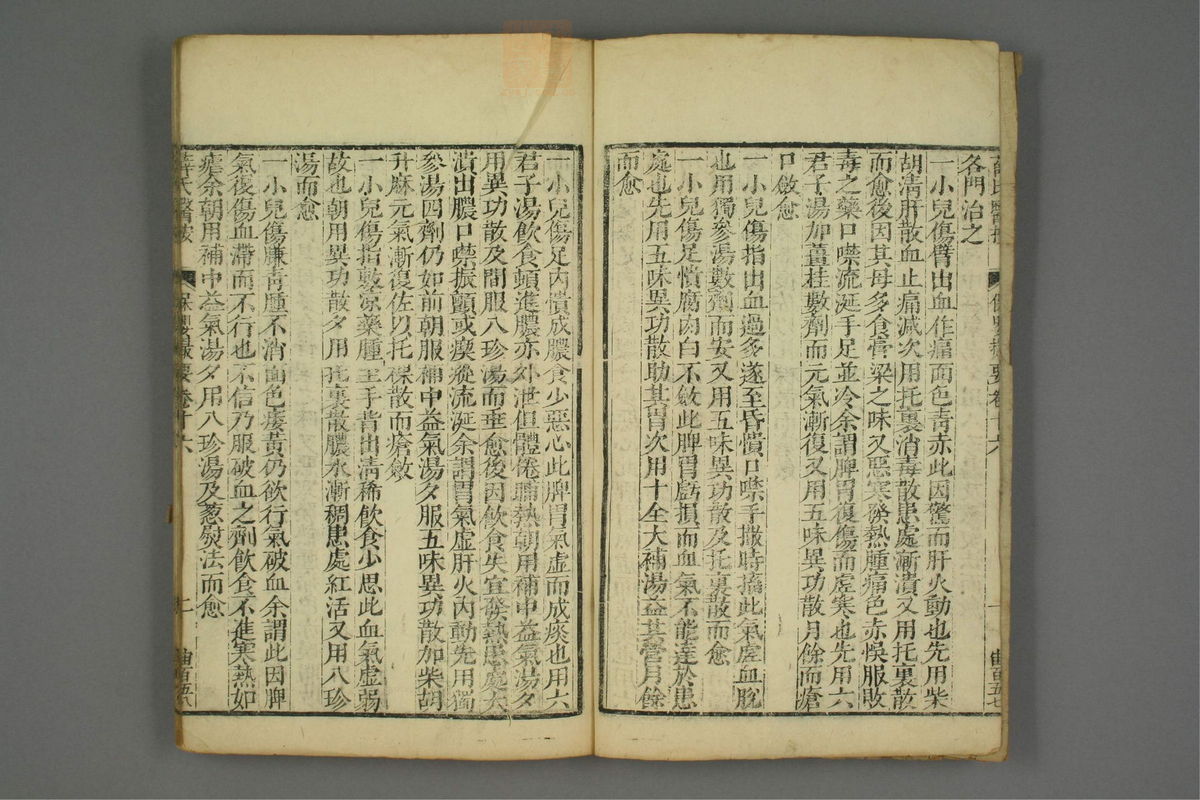 各門治之
一小兒傷臂出血作痛面色青赤此因驚而肝火動也先用柴
胡清肝散血止痛減次用托裏消毒散患處漸潰又用托裏散
而愈後因其母多食膏粱之味又惡寒發熱腫痛色赤悞服敗
毒之藥口噤流涎手足並冷余謂脾胃復傷而虛寒也先用六
君子湯加薑桂數劑而元氣漸復又用五味異功散月餘而瘡
口斂愈
一小兒傷指出血過多遂至昏憒口噤手撒時搐此氣虛血脫
也用獨參湯數劑而安又用五味異功散及托裏散而愈
一小兒傷足潰腐肉白不斂此脾胃虧損而血氣不能達於患
處也先用五味異功散助其胃次用十全大補湯益其營月餘
而愈
一小兒傷足內潰成膿食少惡心此脾胃氣虛而成痰也用六
君子湯飲食頓進膿亦外泄但體倦晡熱朝用補中益氣湯夕
用異功散及間服八珍湯而垂愈後因飲食失宜發熱患處大
潰出膿口噤振顫或瘈瘲流涎余謂胃氣虛肝火內動先用獨
參湯四劑仍如前朝服補中益氣湯夕服五味異功散加柴胡
升麻元氣漸復佐以托裏散而瘡斂
一小兒傷指敷凉藥腫至手背出清稀飲食少思此血氣虛弱
故也朝用異功散夕用托裏散膿水漸稠患處紅活又用八珍
湯而愈
一小兒傷臁青腫不消面色痿黃仍欲行氣破血余謂此因脾
氣復傷血滯而不行也不信乃服破血之劑飲食不進寒熱如
瘧余朝用補中益氣湯夕用八珍湯及葱熨法而愈
薛氏醫按 保嬰撮要卷十六